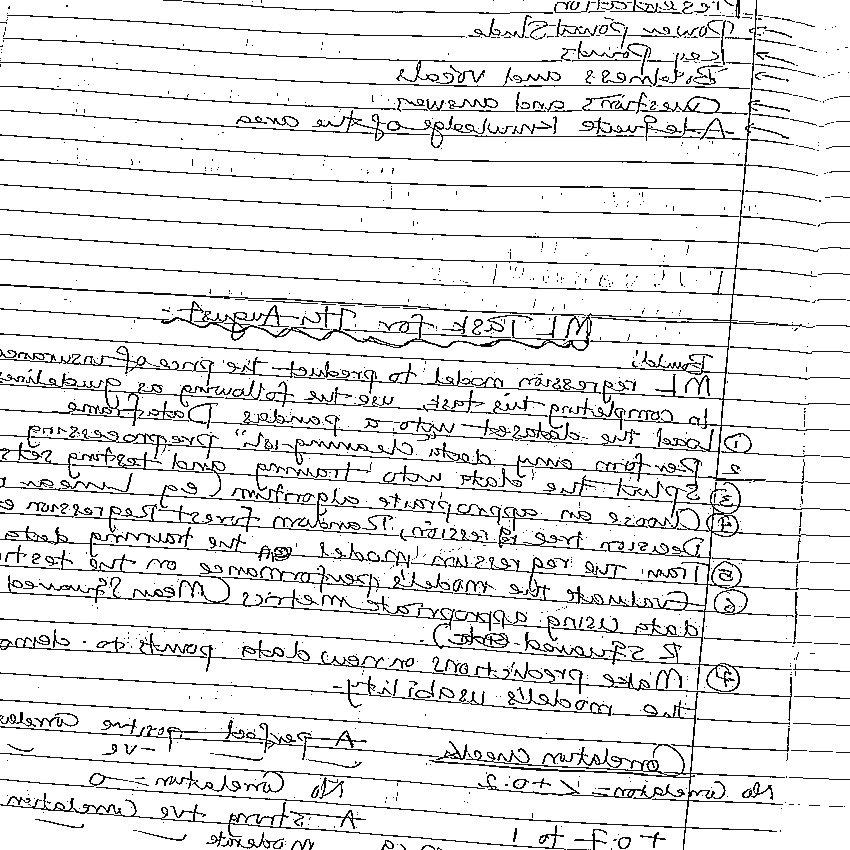 Presentation
→ Power Point Slide
→ Key Points
→ Boldness and vocals
→ Questions and answers
→ Adequate knowledge of the area
ML Task for 7th August :-
Build:
ML regression model to product the price of insurance
to completing this task, use the following as guidelines
① Load the dataset into a pandas Dataframe
2 Perform any data cleaning ist" preprocessing
③ Split the data into training and testing sets
④ Choose an appropraite algorithm (eg Linear
Decision tree regression, Random Forest Regression
⑤ Train the regression model on the training data
⑥ Evaluate the model's performance on the testing
data using appropraite metrics (Mean Squared
R Squared etc).
⑦ Make predictions on new data points to demo
the model's usability.
Correlation Checks
A perfect positive Correla
-ve
No Correlation = < +0.2
No Correlation = 0
+0.7 to 1
A strong +ve Correlation
moderate